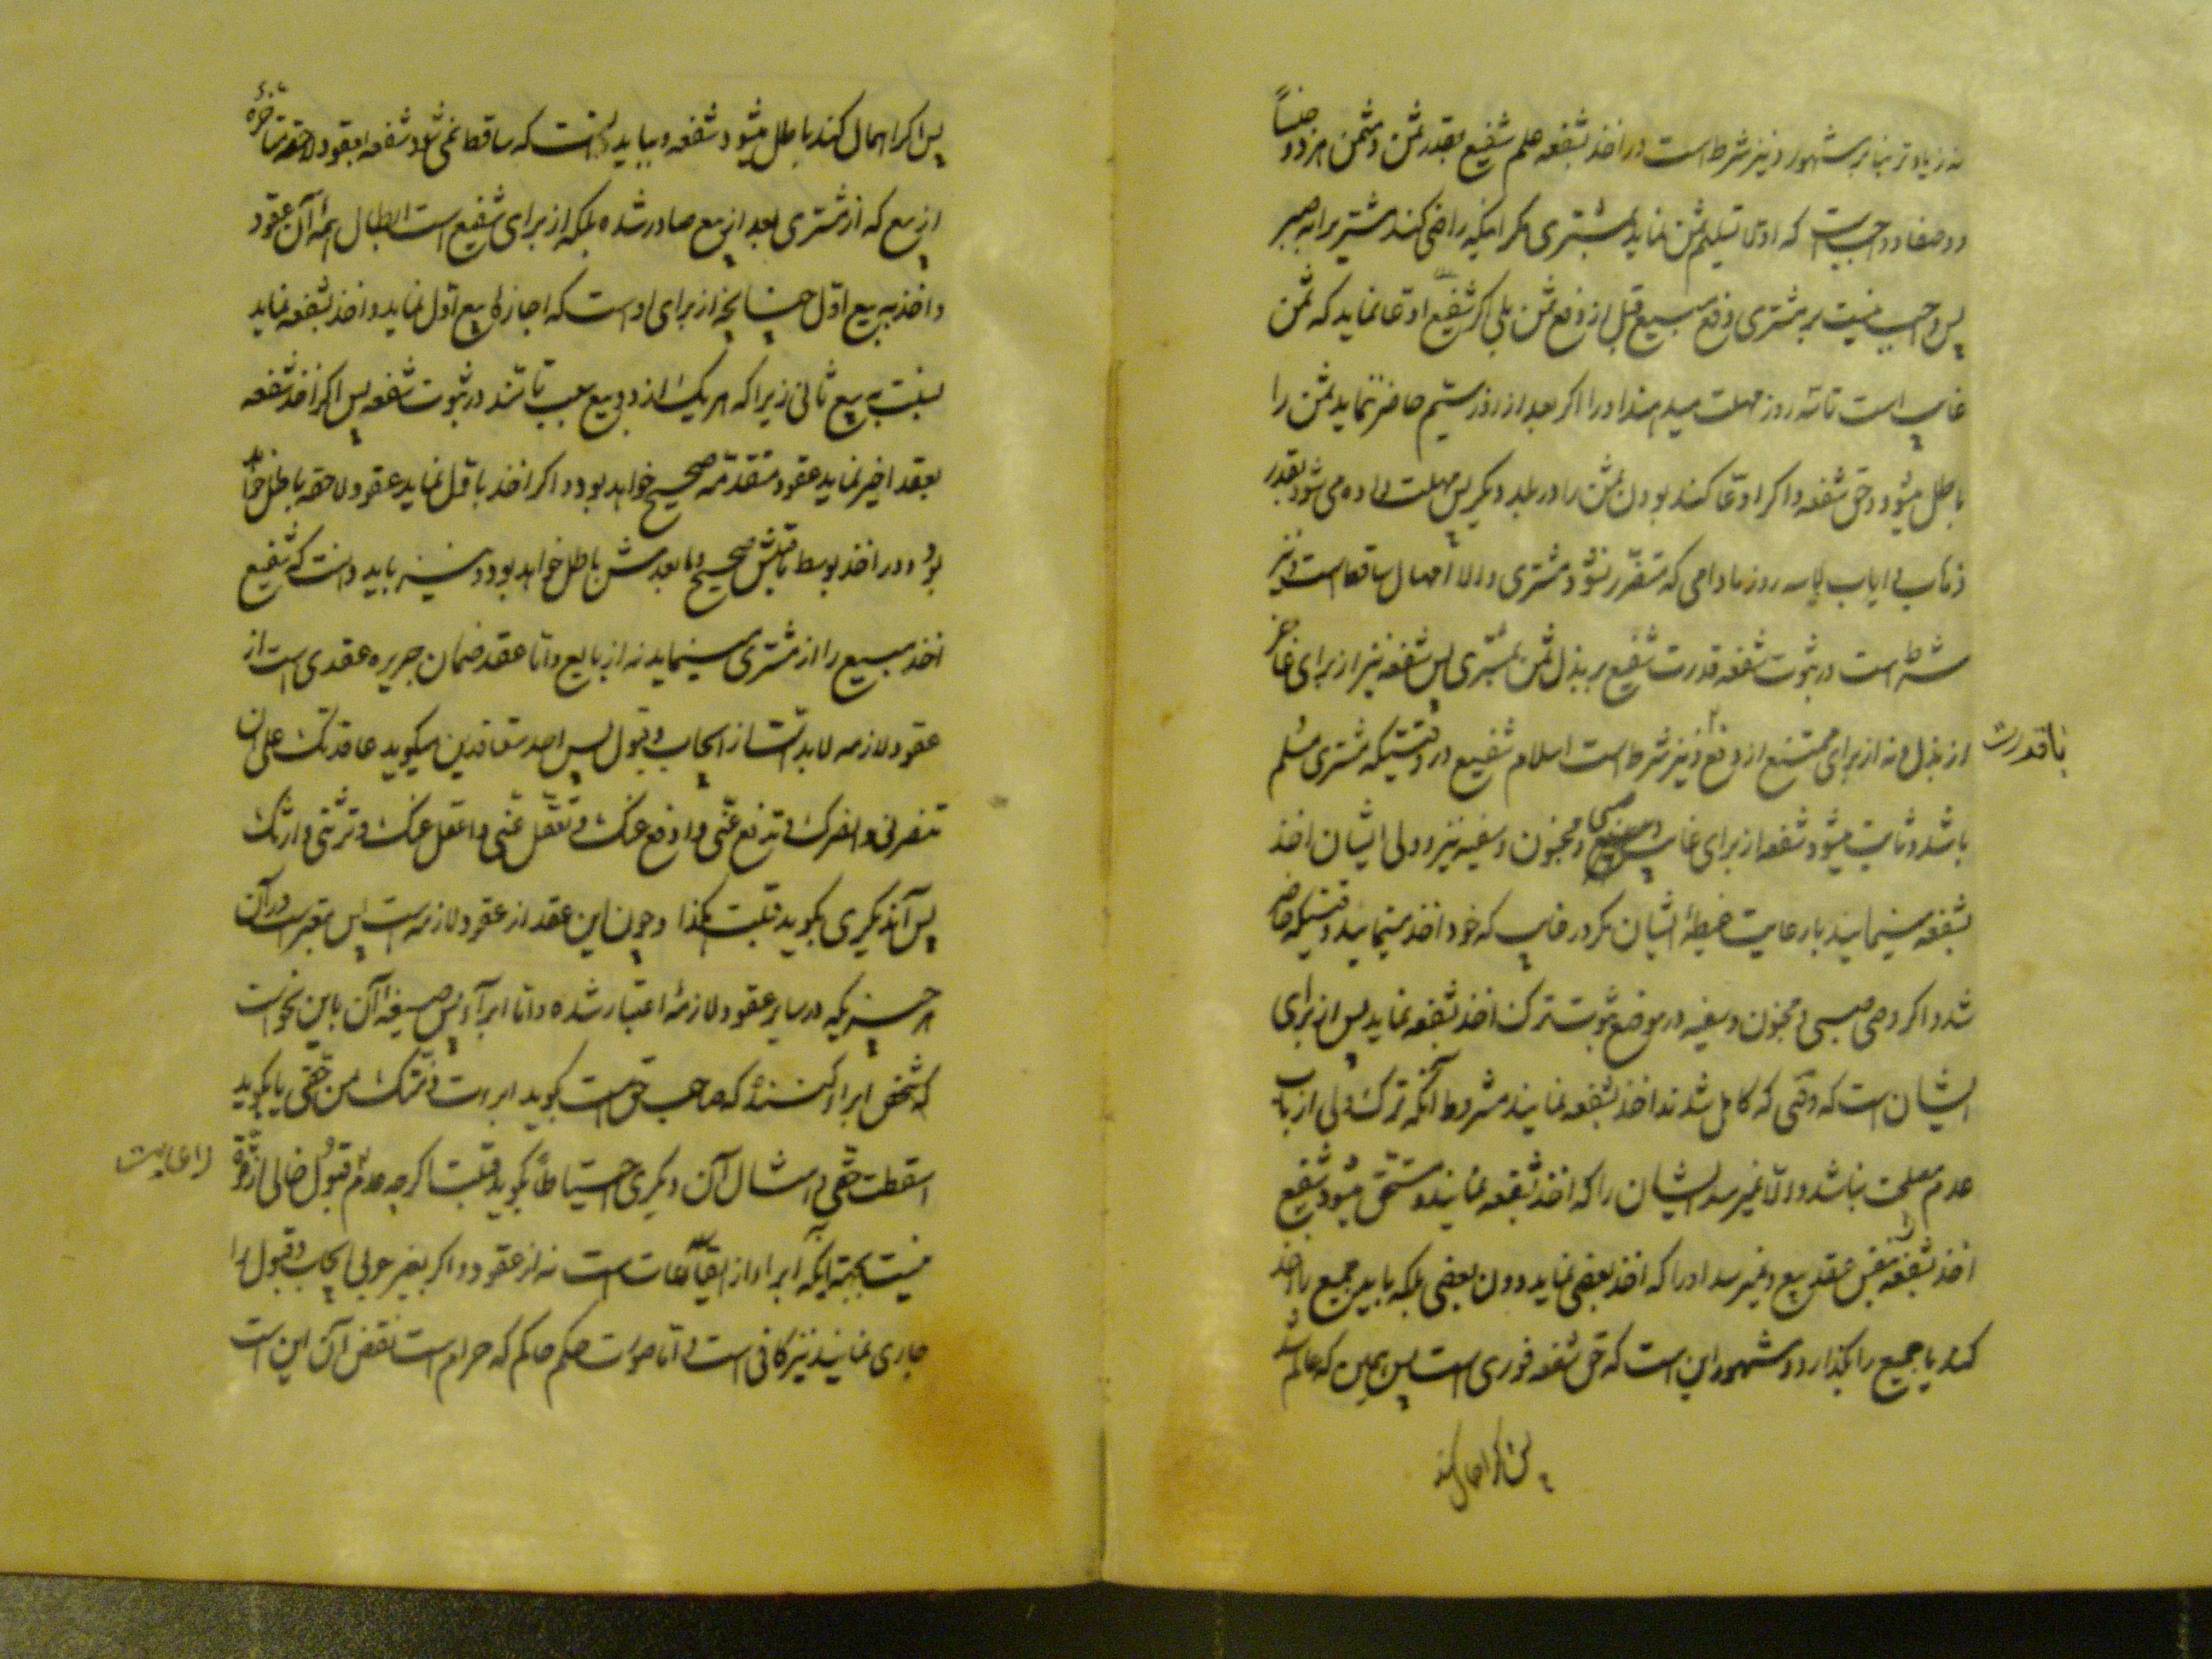 نه زیادتر بنابر مشهور و نیز شرط است در اخذ بشفعه علم شفیع بقدر ثمن و مثمن هر دو جنساً
و وصفا و واجبست که اولا تسلیم ثمن نماید بمشتری مکر اینکه راضی کند مشتریرا به صبر
پس واجب نیست بر مشتری دفع مبیع قبل از دفع ثمن بلی اکر شفیع ادعا نماید که ثمن
غایب است تا سه روز مهلت میدهند او را اکر بعد از روز سیم حاضر ننماید ثمن را
باطل میشود حق شفعه و اکر ادعا کند بودن ثمن را در بلد دیکر پس مهلت داده می شود بقدر
ذهاب و ایاب با سه روز مادامی که متضرر نشود مشتری و الا امهال ساقط است و نیز
شرط است در ثبوت شفعه قدرت شفیع بر بذل ثمن بمشتری پس شفعه نیز از برای عاجز
از بذل و نه از برای ممتنع از دفع و نیز شرط است اسلام شفیع در وقتیکه مشتری مسلم
با قدرت
باشد و ثابت میشود شفعه از برای غایب و صبی و مجنون و سفیه نیز و ولی ایشان اخذ
بشفعه مینمایند با رعایت غبطهٔ ایشان مکر در غایب که خود اخذ مینماید وقتیکه حاضر
شد و اکر وصی صبی و مجنون و سفیه در موضع ثبوت ترک اخذ بشفعه نماید پس از برای
ایشان است که وقتی که کامل شدند اخذ بشفعه نمایند مشروط آنکه ترک ولی از باب
عدم مصلحت نباشد و الا نمیرسد ایشان را که اخذ بشفعه نمایند و مستحق میشود شفیع
اخذ بشفعه را بنفس عقد بیع و نمیرسد او را که اخذ بعضی نماید دون بعضی بلکه باید جمیع را اخذ
کند یا جمیع را بکذارد و مشهور این است که حق شفعه فوری است پس همین که عالم شد
پس اکر اهمال کند
پس اکر اهمال کند باطل میشود شفعه و بباید دانست که ساقط نمی شود شفعه بعقود لاحقه متأخره
از بیع که از مشتری بعد از بیع صادر شده بلکه از برای شفیع است ابطال همهٔ آن عقود
و اخذ به بیع اول چنانچه از برای او است که اجازهٔ بیع اول نماید و اخذ بشفعه نماید
بنسبت به بیع ثانی زیرا که هر یک از دو بیع سبب تامند در ثبوت شفعه پس اکر اخذ شفعه
بعقد اخیر نماید عقود متقدمه صحیح خواهد بود و اکر اخذ باول نماید عقود لاحقه باطل خواهد
بود و در اخذ بوسط ما قبلش صحیح و ما بعدش باطل خواهد بود و نیز باید دانست که شفیع
اخذ مبیع را از مشتری مینماید نه از بایع و اما عقد ضمان جریره عقدی است از
عقود لازمه لابد است از ایجاب و قبول پس احد متعاقدین میکوید عاقدتک علی ان
تنصرنی و انصرک و تدفع عنی و ادفع عنک و تعقل عنی و اعقل عنک و ترثنی و ارثک
پس آن دیکری بکوید قبلت هکذا و چون این عقد از عقود لازمه است پس معتبر است در آن
هر چیزیکه در سایر عقود لازمه اعتبار شده و اما ابرآء پس صیغهٔ آن باین نحو است
که شخص ابراء کننده که صاحب حق است بکوید ابرءت ذمتک من حقی یا بکوید
اسقطت حقی و امثال آن و دیکری احتیاطاً بکوید قبلت اکرچه عدم قبول خالی از قوة
رعایت
نیست بجهة اینکه ابراء از ایقاعات است نه از عقود و اکر بغیر عربی ایجاب و قبول را
جاری نمایند نیز کافی است و اما صورت حکم حاکم که حرام است نقض آن این است